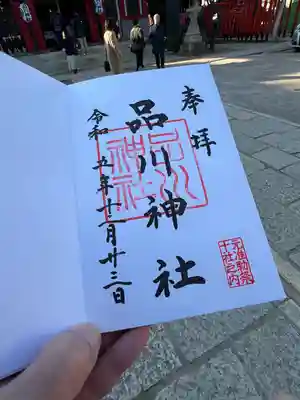 奉拝
品川神社
品川神社
令和五年十一月廿三日
元准勅祭
十社之内